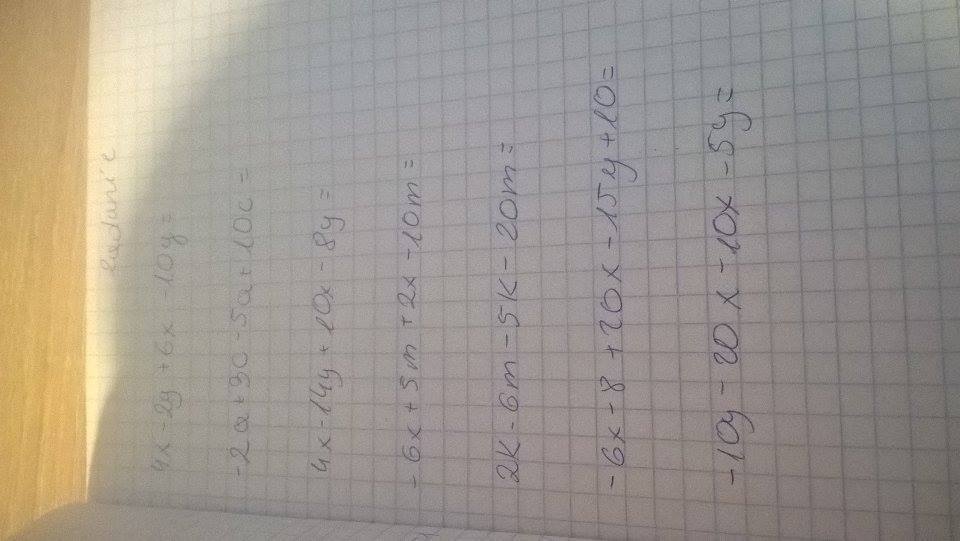 Zadanie
4x - 2y + 6x - 10y =
-2a + 9c - 5a + 10c =
4x - 14y + 10x - 8y =
-6x + 5m + 2x - 10m =
2k - 6m - 5k - 20m =
-6x - 8 + 20x - 15y + 10 =
-10y - 20x - 10x - 5y =